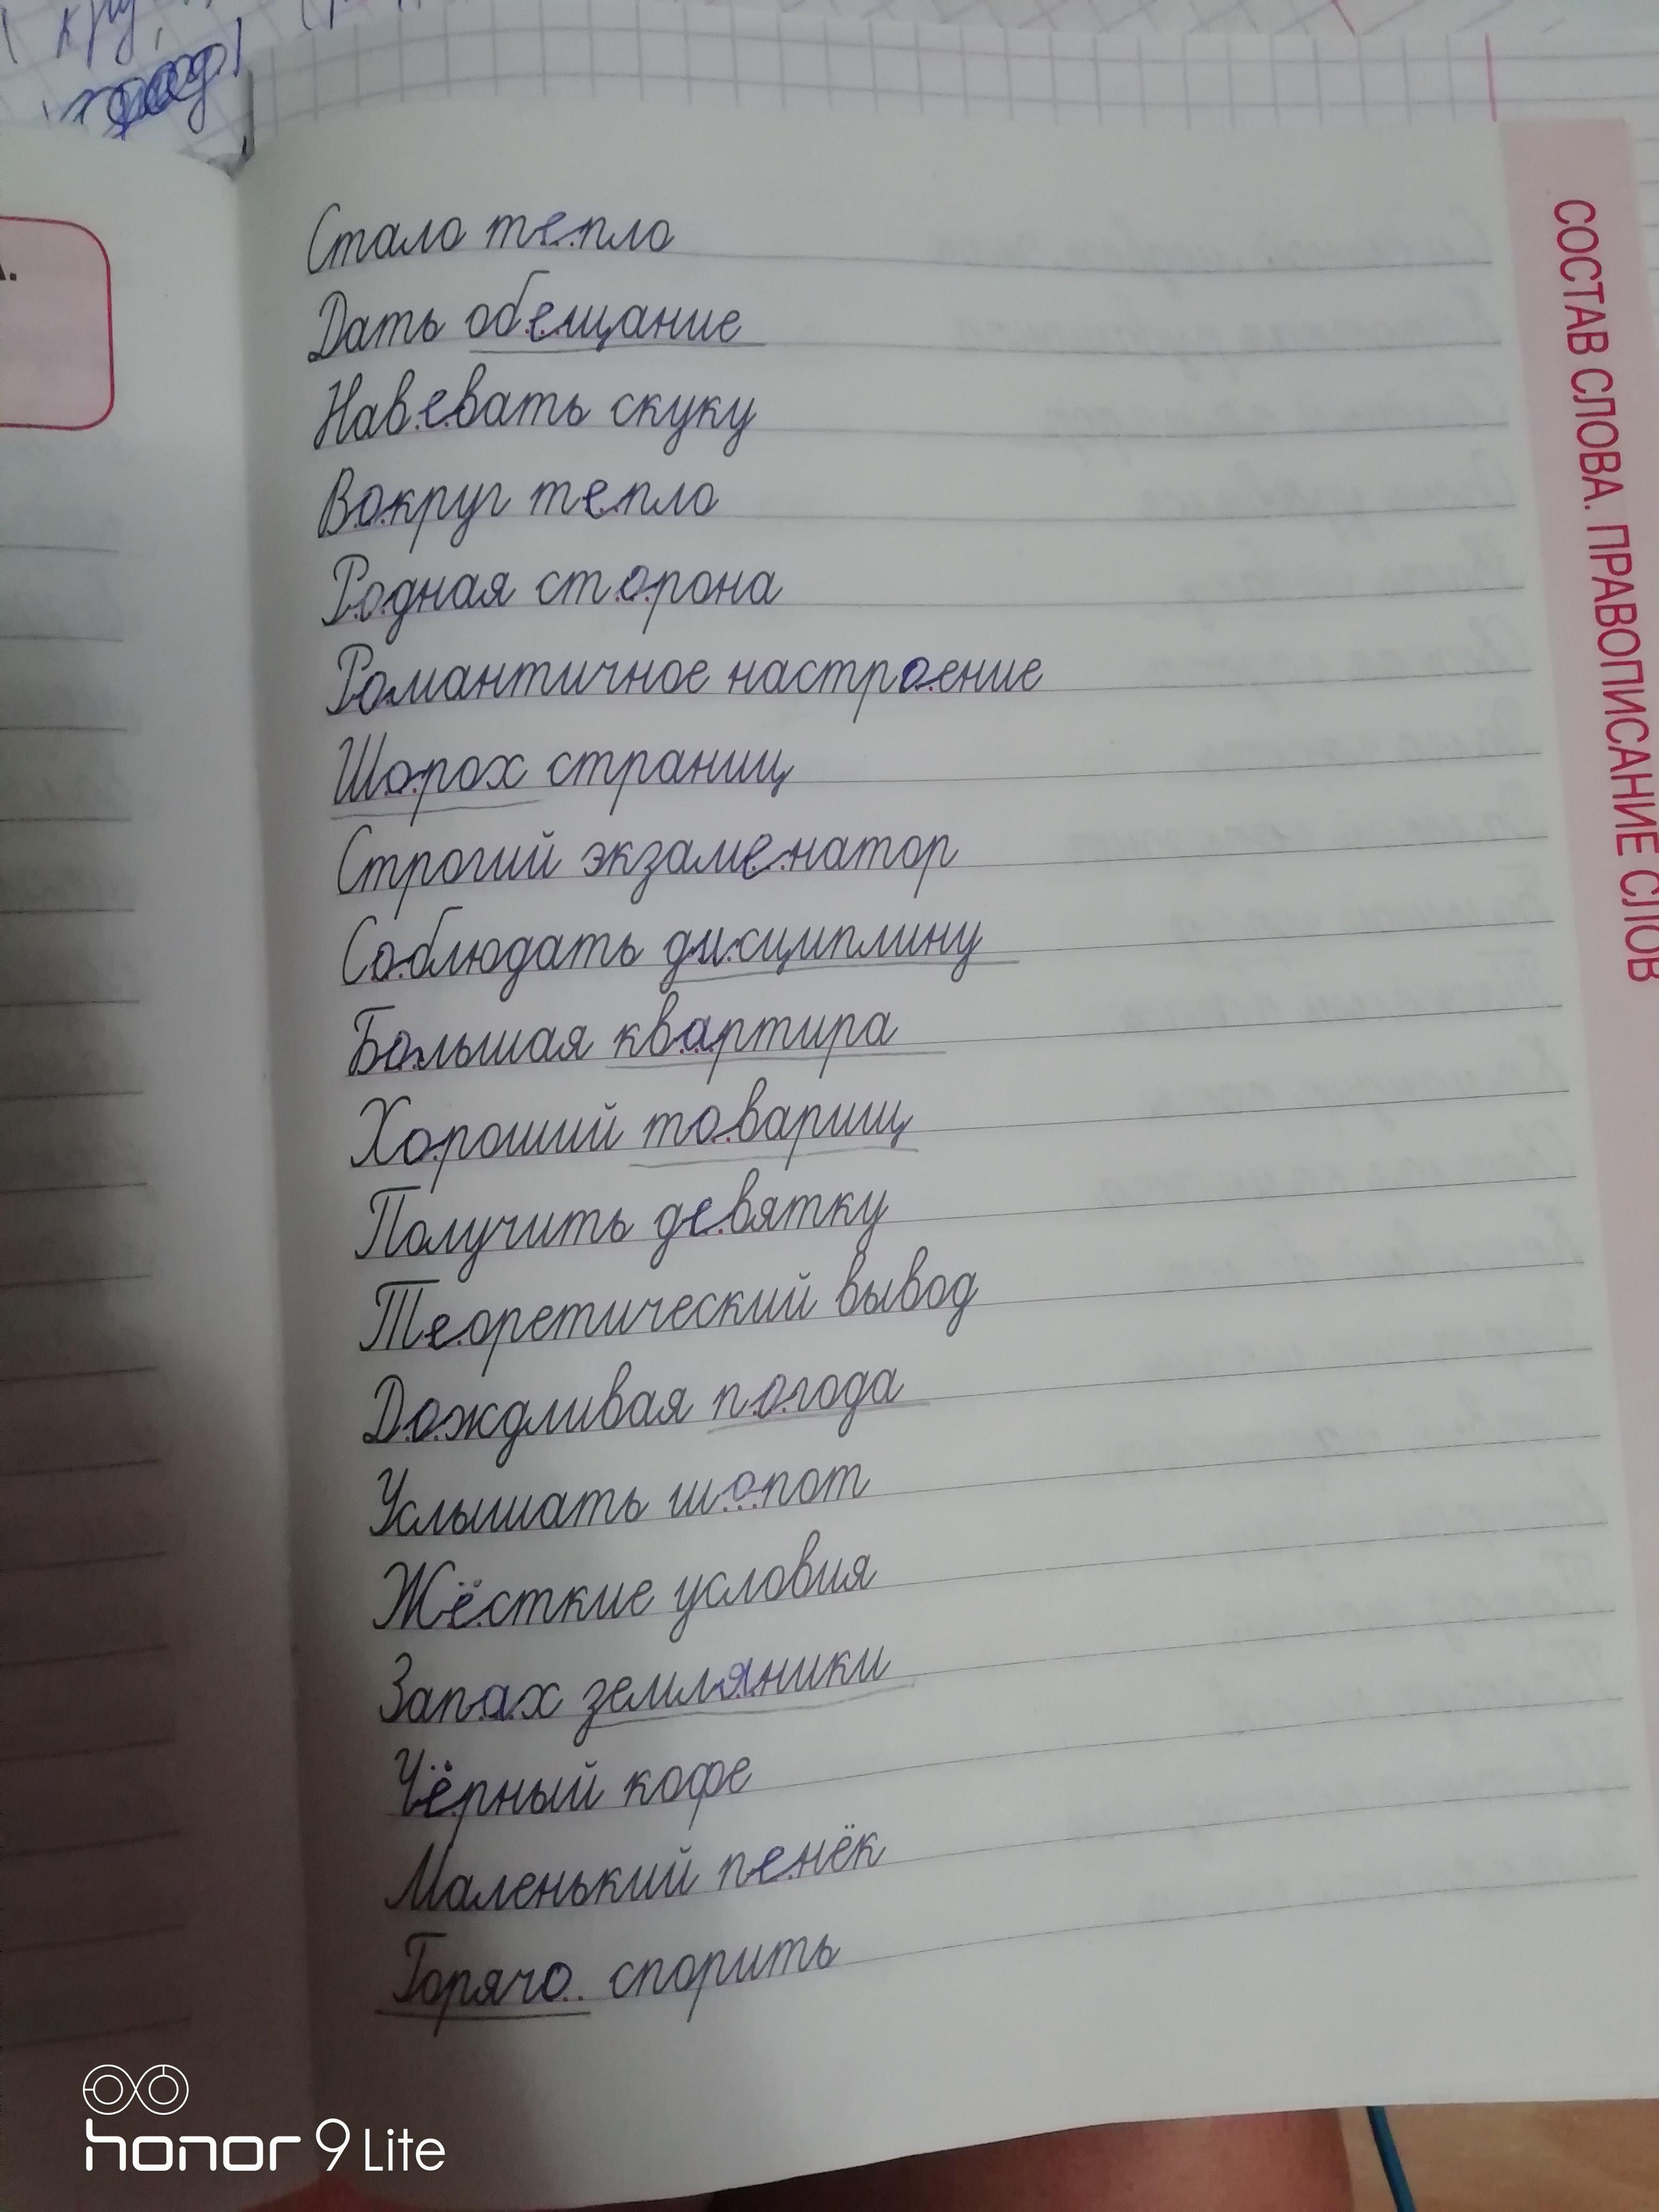 Стало тепло
Дать обещание
Навевать скуку
Вокруг тепло
Родная сторона
Романтичное настроение
Шорох страниц
Строгий экзаменатор
Соблюдать дисциплину
Большая квартира
Хороший товарищ
Получить девятку
Теоретический вывод
Дождливая погода
Услышать шопот
Жёсткие условия
Запах земляники
Чёрный кофе
Маленький пенёк
Горячо спорить
СОСТАВ СЛОВА. ПРАВОПИСАНИЕ СЛОВ
honor 9 Lite